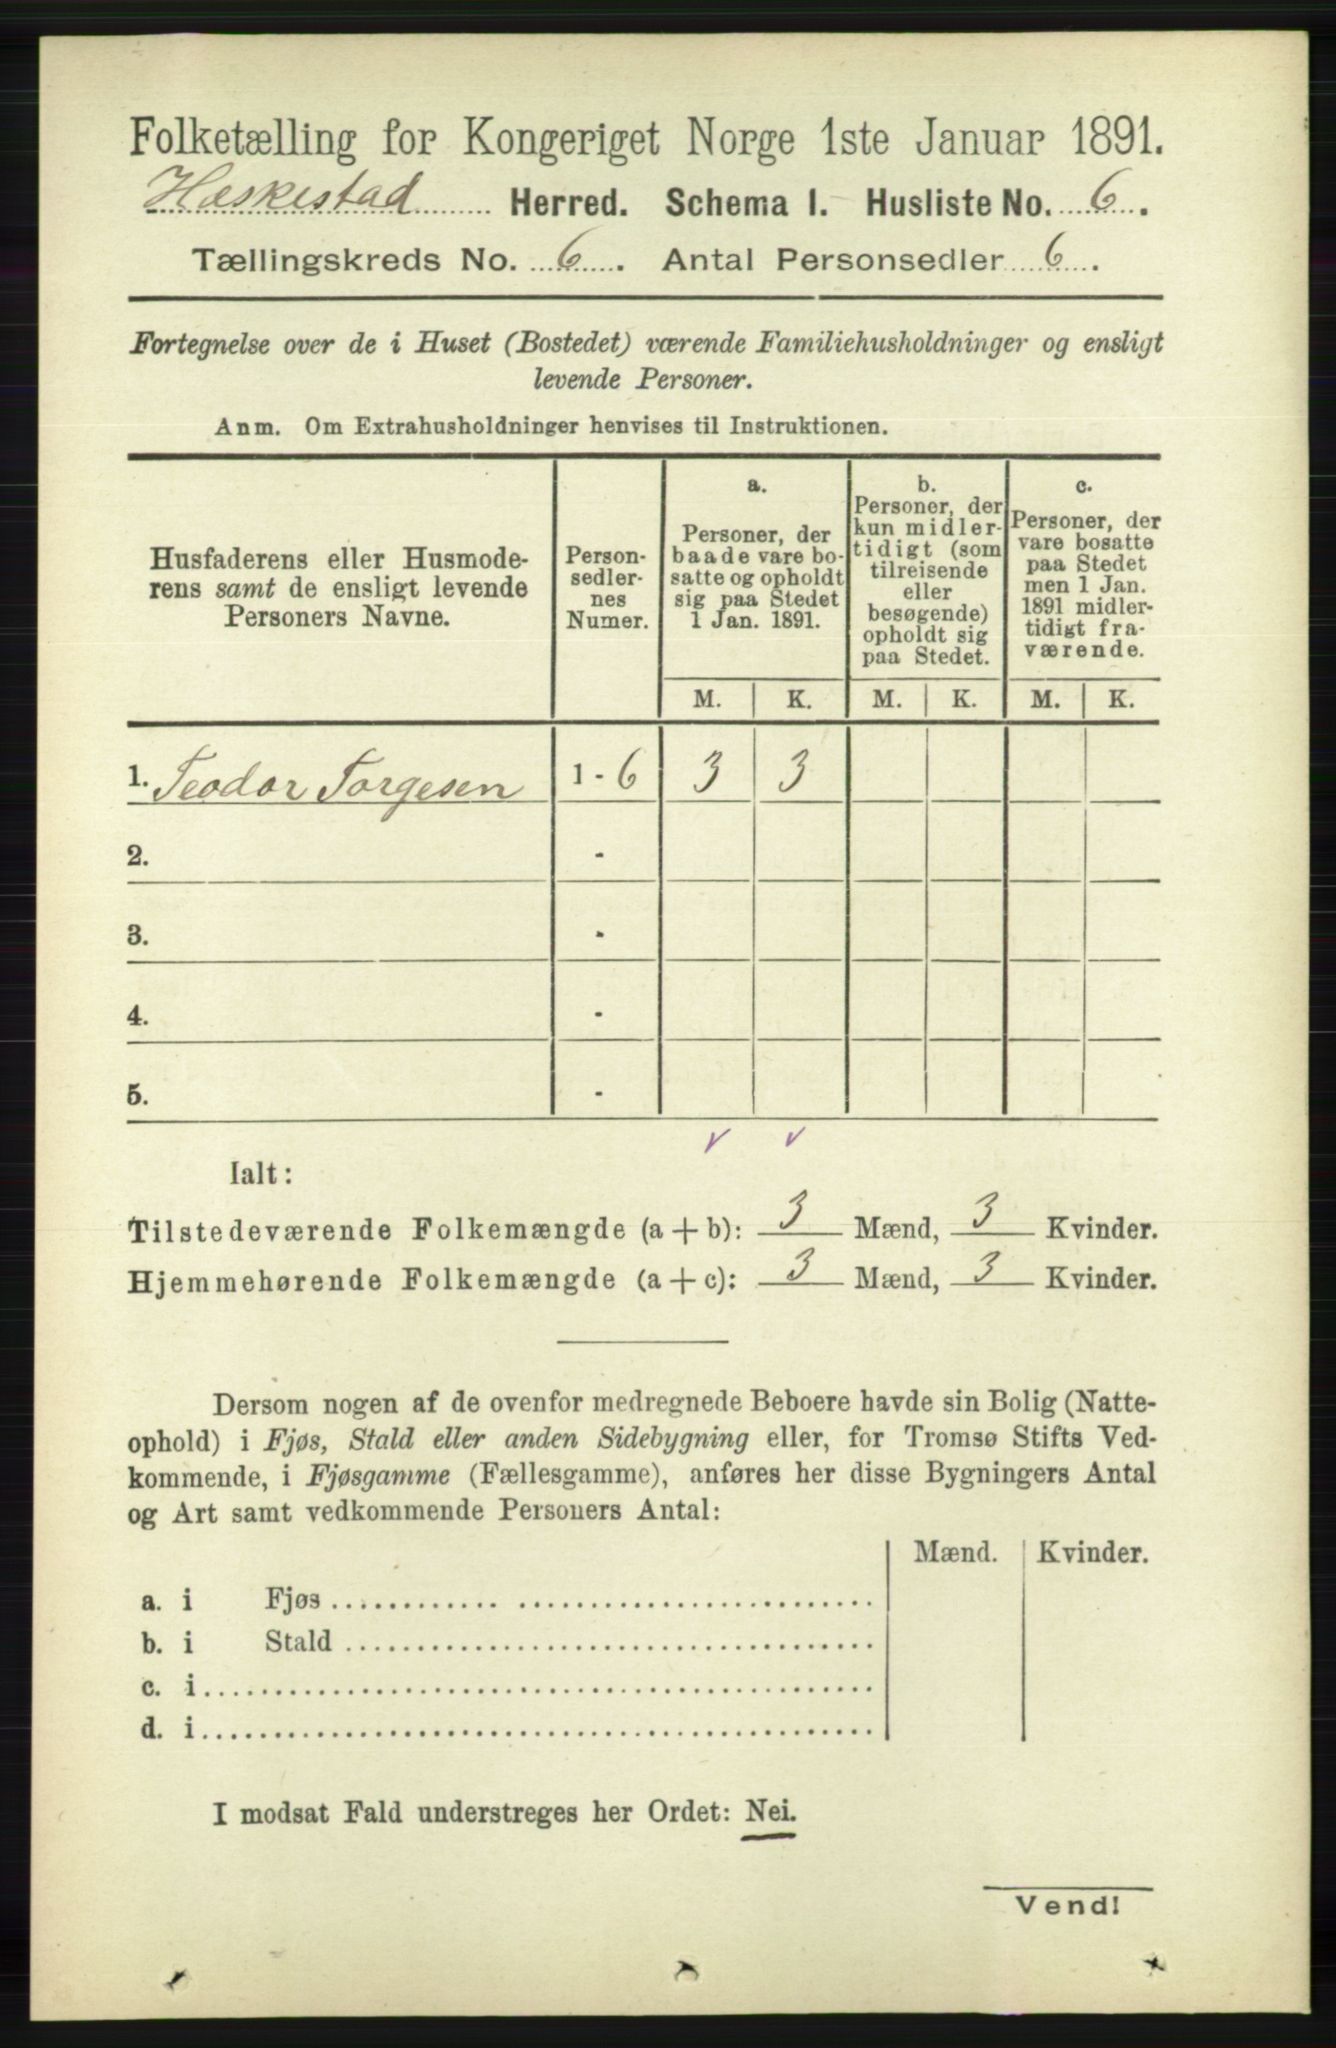 Folketælling for Kongeriget Norge 1ste Januar 1891.
Heskestad Herred. Schema I. Husliste No. 6.
Tællingskreds No. 6. Antal Personsedler 6.
Fortegnelse over de i Huset (Bostedet) værende Familiehusholdninger og ensligt
levende Personer.
Anm. Om Extrahusholdninger henvises til Instruktionen.
Husfaderens eller Husmode-
rens samt de ensligt levende
Personers Navne.
Person-
sedler-
nes
Numer.
a.
Personer, der
baade vare bo-
satte og opholdt
sig paa Stedet
1 Jan. 1891.
b.
Personer, der
kun midler-
tidigt (som
tilreisende
eller
besøgende)
opholdt sig
paa Stedet.
c.
Personer, der
vare bosatte
paa Stedet
men 1 Jan.
1891 midler-
tidigt fra-
værende.
M. K. M. K. M. K.
1. Teodor Torgesen 1 - 6 3 3
2. -
3. -
4. -
5. -
Ialt:
Tilstedeværende Folkemængde (a + b): 3 Mænd, 3 Kvinder.
Hjemmehørende Folkemængde (a + c): 3 Mænd, 3 Kvinder.
Dersom nogen af de ovenfor medregnede Beboere havde sin Bolig (Natte-
ophold) i Fjøs, Stald eller anden Sidebygning eller, for Tromsø Stifts Ved-
kommende, i Fjøsgamme (Fællesgamme), anføres her disse Bygningers Antal
og Art samt vedkommende Personers Antal:
Mænd. Kvinder.
a. i Fjøs
b. i Stald
c. i
d. i
I modsat Fald understreges her Ordet: Nei.
Vend!